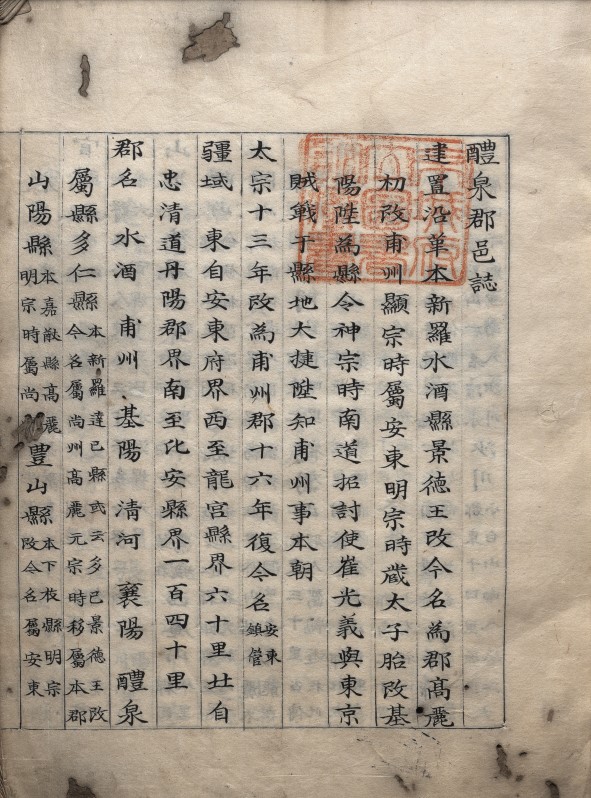 醴泉郡邑誌
建置沿革本新羅水酒縣景德王改今名為郡髙麗
初改甫州顯宗時屬安東明宗時蔵太子胎改基
陽陞為縣令神宗時南道招討使崔光義與東京
賊戰于縣地大捷陞知甫州事本朝
太宗十三年改為甫州郡十六年復今名安東鎮管
疆域 東自安東府界西至龍宮縣界六十里北自
忠清道丹陽郡界南至比安縣界一百四十里
郡名 水酒 甫州 基陽 清河 襄陽 醴泉
屬縣多仁縣本新羅達已縣或云多已景德王改今名屬尚州髙麗元宗時移屬本郡
山陽縣本嘉猷縣髙麗明宗時屬尚 豊山縣本下枝縣明宗改今名屬安東